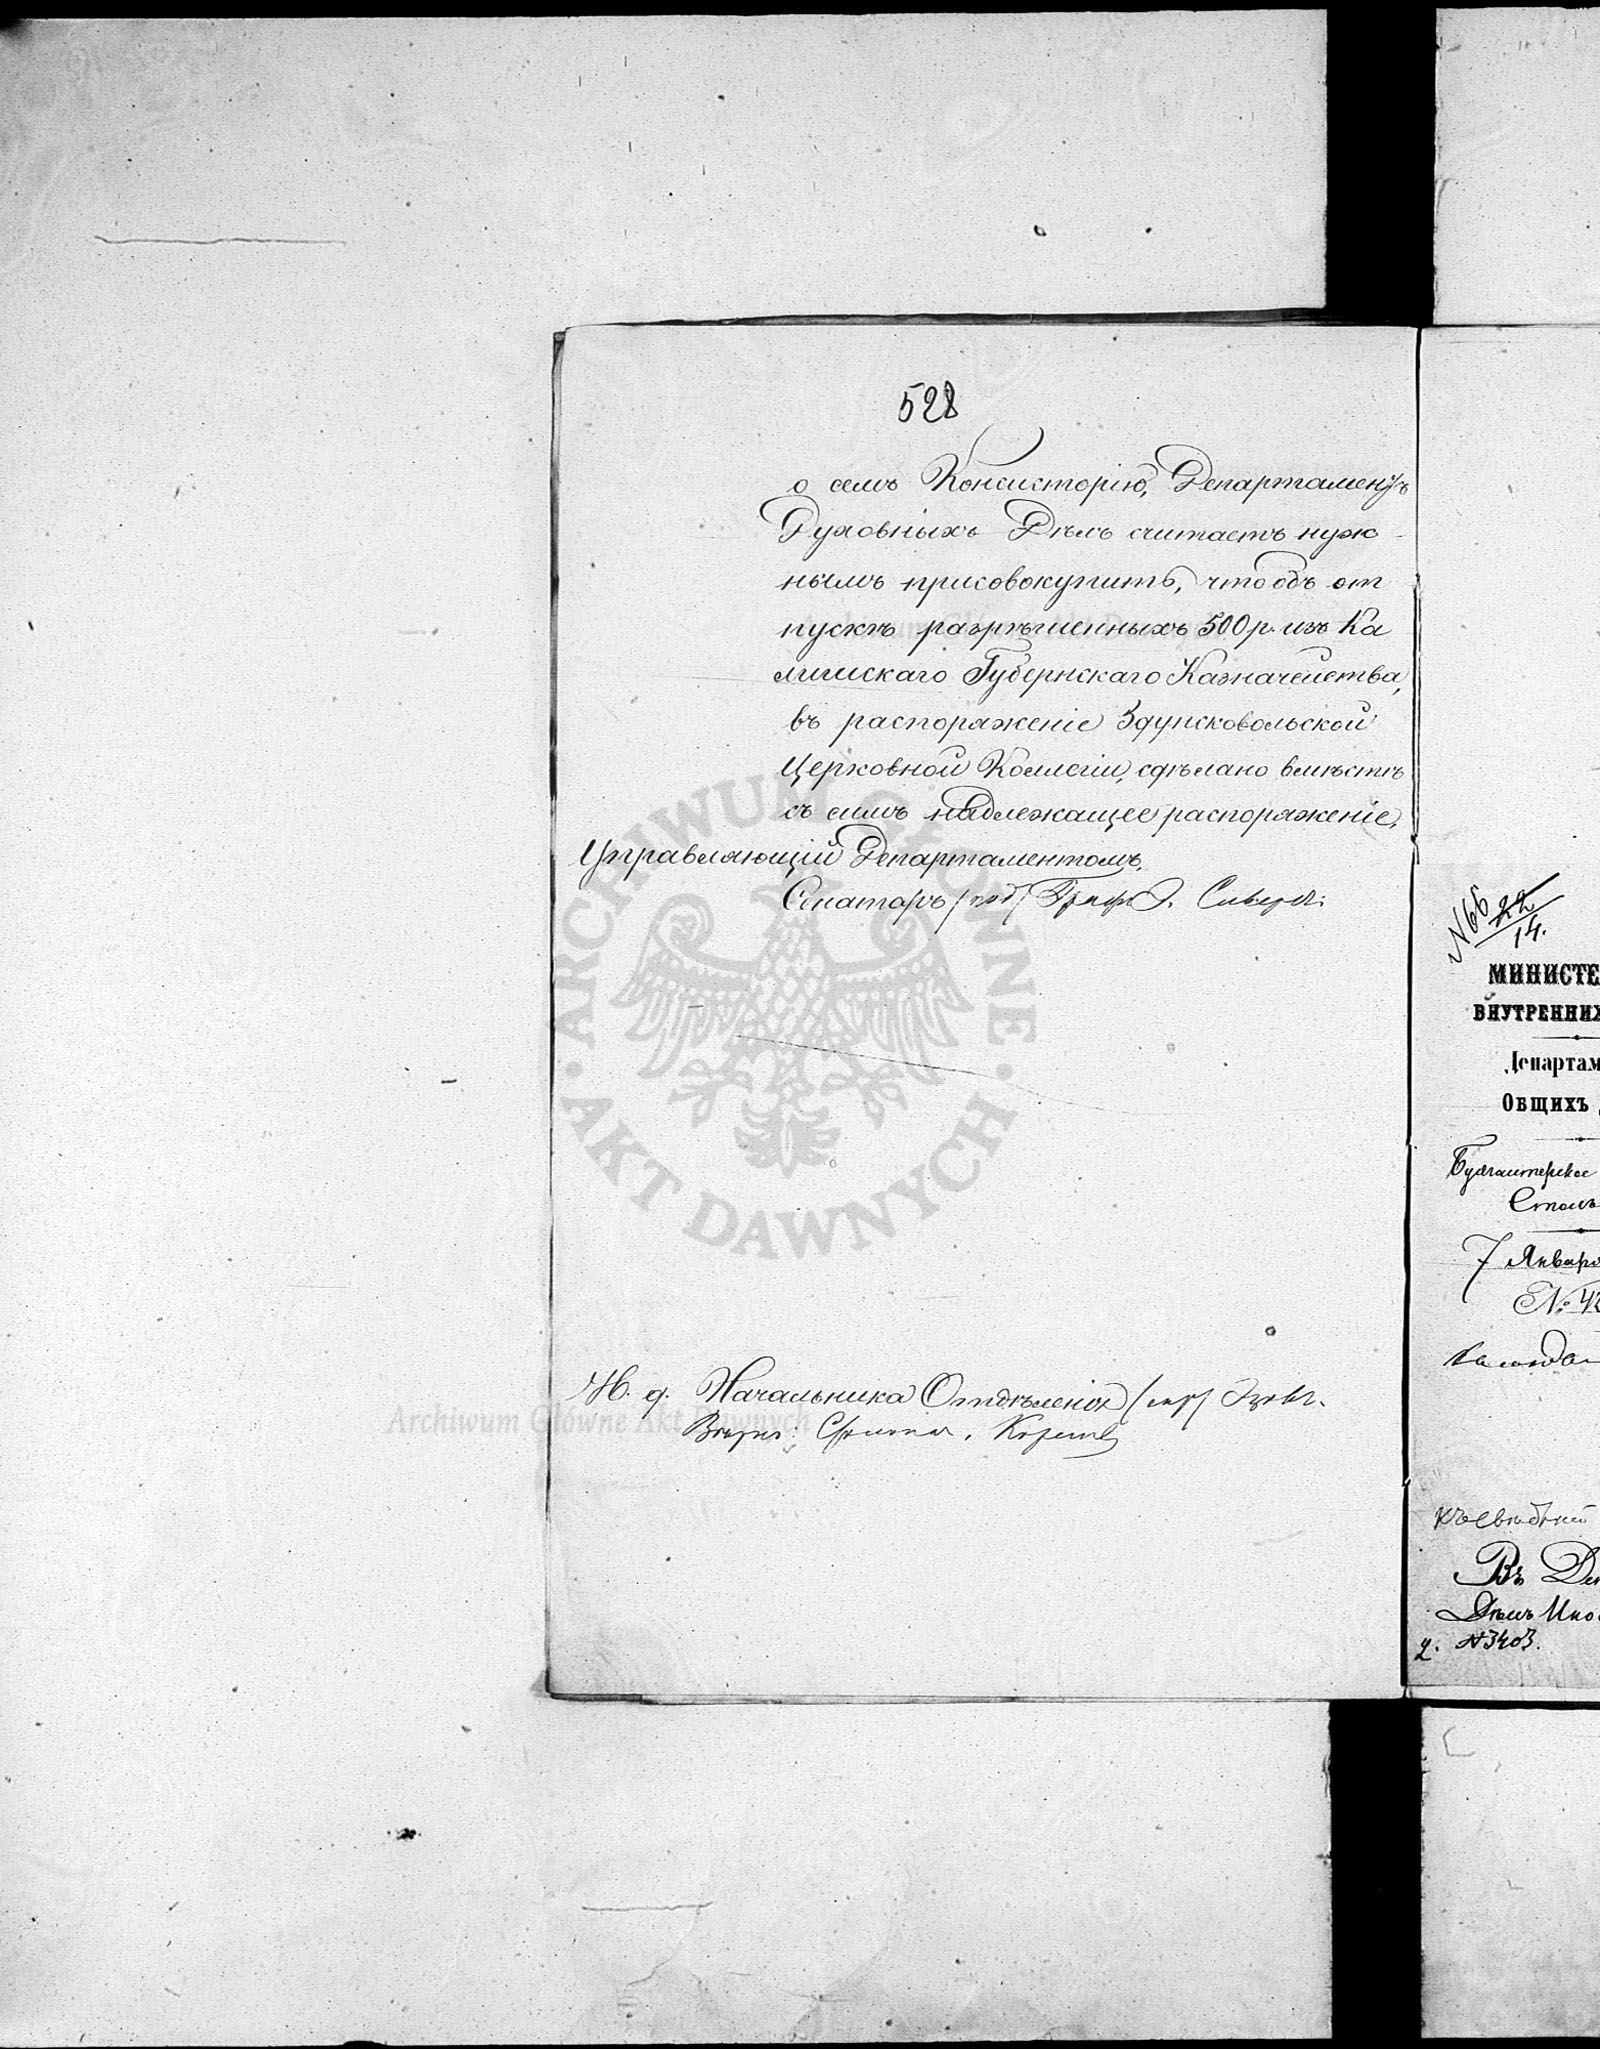 528
о семъ Консисторію, Департаментъ
Духовныхъ Дѣлъ считаетъ нуж-
нымъ присовокупить, что объ от
пускѣ разрѣшенныхъ 500 р. изъ Ка
лишскаго Губернскаго Казначейства,
въ распоряженіе Здунсковольской
Церковной Коллегіи, сдѣлано вмѣстѣ
съ симъ надлежащее распоряженіе.
Управляющій Департаментомъ,
Сенаторъ /под/ Графъ Э. Сиверсъ.
И. д. Начальника Отдѣленія
Вѣрно:
N 66 22/14.
МИНИСТЕ
ВНУТРЕННИХ
Департам
ОБЩИХЪ
Бухгалтерское
Столъ
7 Январ
№ 42
Въ Де
Дѣлъ Ино
2. N3403.
ARCHIWUM GŁÓWNE AKT DAWNYCH
Archiwum Główne Akt Dawnych